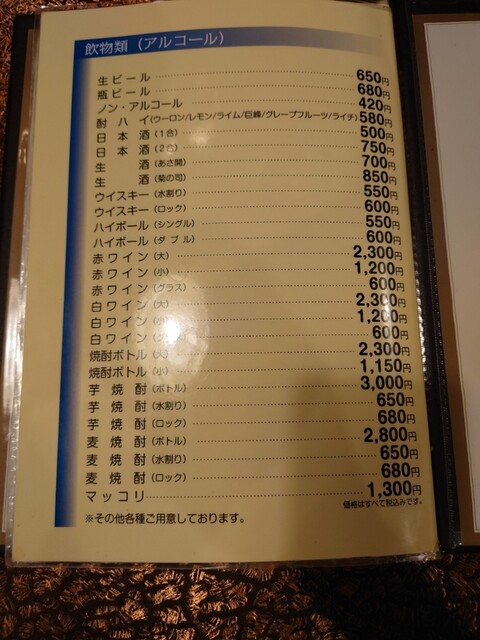 飲物類（アルコール）
生ビール 650円
瓶ビール 680円
ノン・アルコール 420円
酎ハイ(ウーロン/レモン/ライム/巨峰/グレープフルーツ/ライチ) 580円
日本酒(1合) 500円
日本酒(2合) 750円
生酒(あさ開) 700円
生酒(菊の司) 850円
ウイスキー(水割り) 550円
ウイスキー(ロック) 600円
ハイボール(シングル) 550円
ハイボール(ダブル) 600円
赤ワイン(大) 2,300円
赤ワイン(小) 1,200円
赤ワイン(グラス) 600円
白ワイン(大) 2,300円
白ワイン(小) 1,200円
白ワイン 600円
焼酎ボトル(大) 2,300円
焼酎ボトル(小) 1,150円
芋焼酎(ボトル) 3,000円
芋焼酎(水割り) 650円
芋焼酎(ロック) 680円
麦焼酎(ボトル) 2,800円
麦焼酎(水割り) 650円
麦焼酎(ロック) 680円
マッコリ 1,300円
価格はすべて税込みです。
※その他各種ご用意しております。